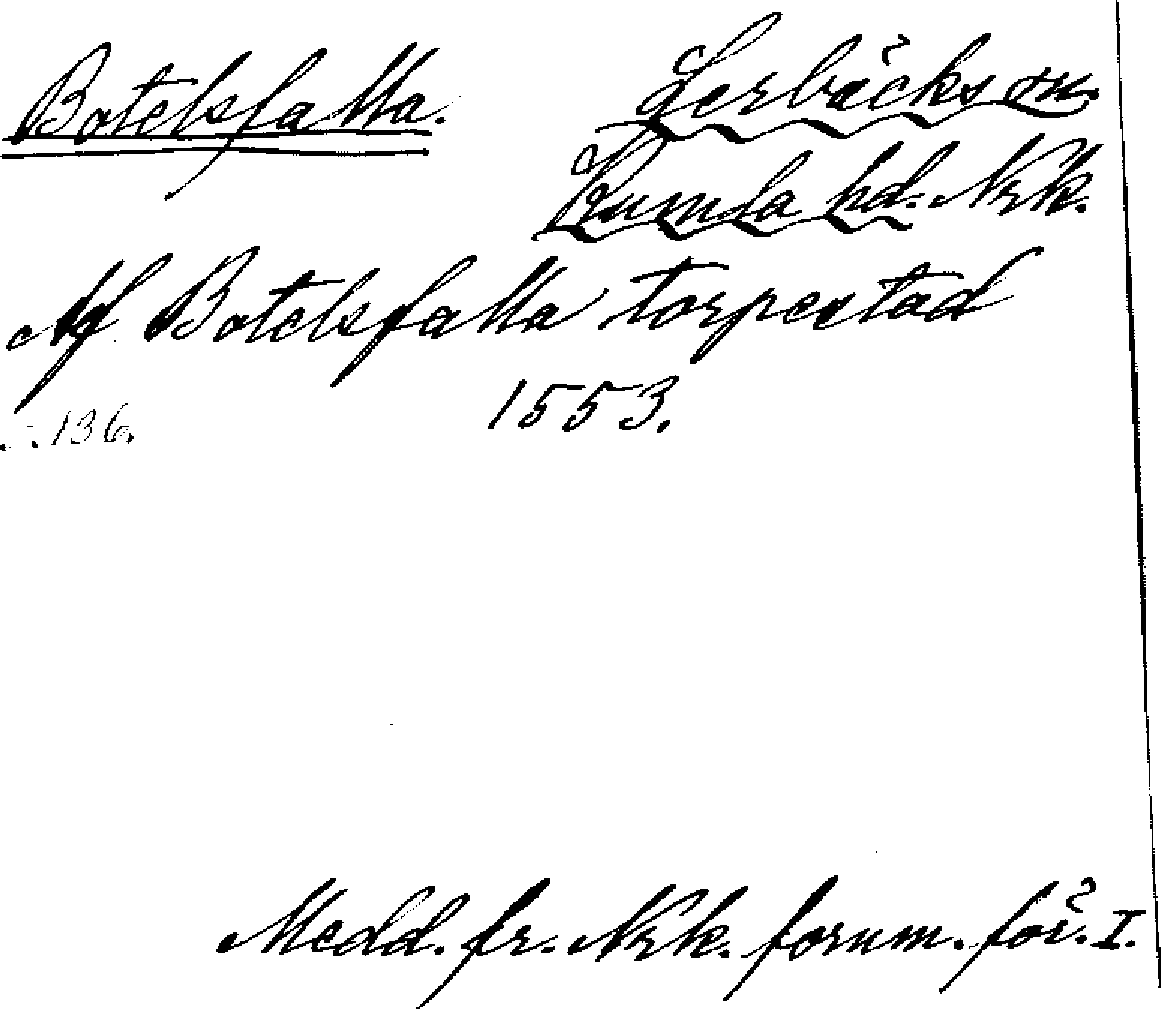 Botelsfalla. Lerbäcks sn.
Kumla hd. Nrk.
Af Botelsfalla torpestad
1553.
s. 136.
Medd. fr. Nrk. fornm. för. I.